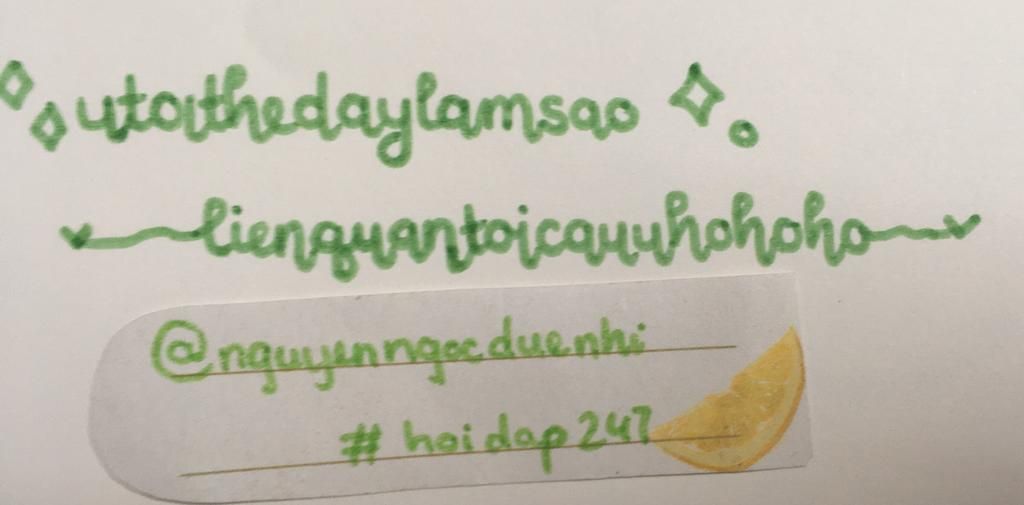 utoithedaylamsao
lienquantoicauuhohoho
@nguyenngocduenhi
#hoidap247